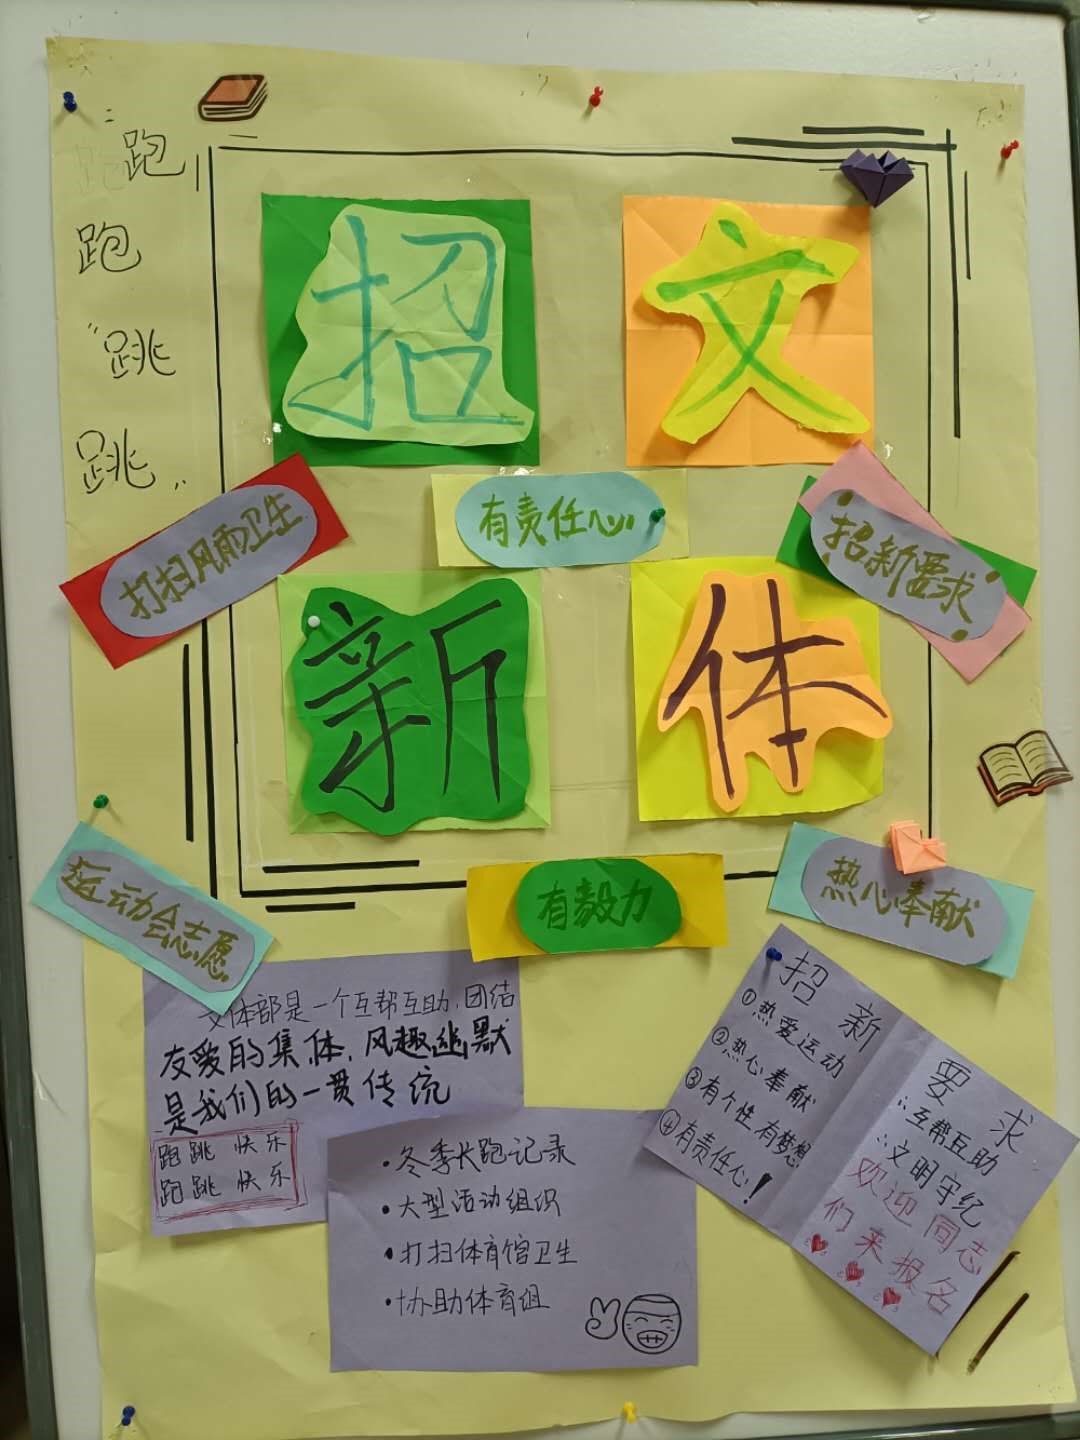 跑
跑
跳
跳
招 文
新 体
打扫风雨卫生
有责任心
招新要求
运动会志愿
有毅力
热心奉献
文体部是一个互帮互助,团结
友爱的集体,风趣幽默
是我们的一贯传统
跑跳 快乐
跑跳 快乐
·冬季长跑记录
·大型活动组织
·打扫体育馆卫生
·协助体育组
招新要求
①热爱运动
②热心奉献
③有个性有梦想
④有责任心!
∴互帮互助
∴文明守纪
欢迎同志
们来报名